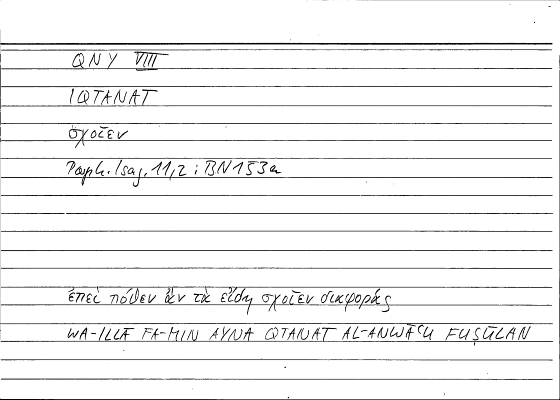 QNY VIII
IQTANAT
σχοῖεν
Porph. Isag. 11,2 : BN 153a
ἐπεὶ πόθεν ἂν τὰ εἴδη σχοῖεν διαφοράς
WA-ILLĀ FA-MIN AYNA QTANAT AL-ANWĀʿU FUṢŪLAN